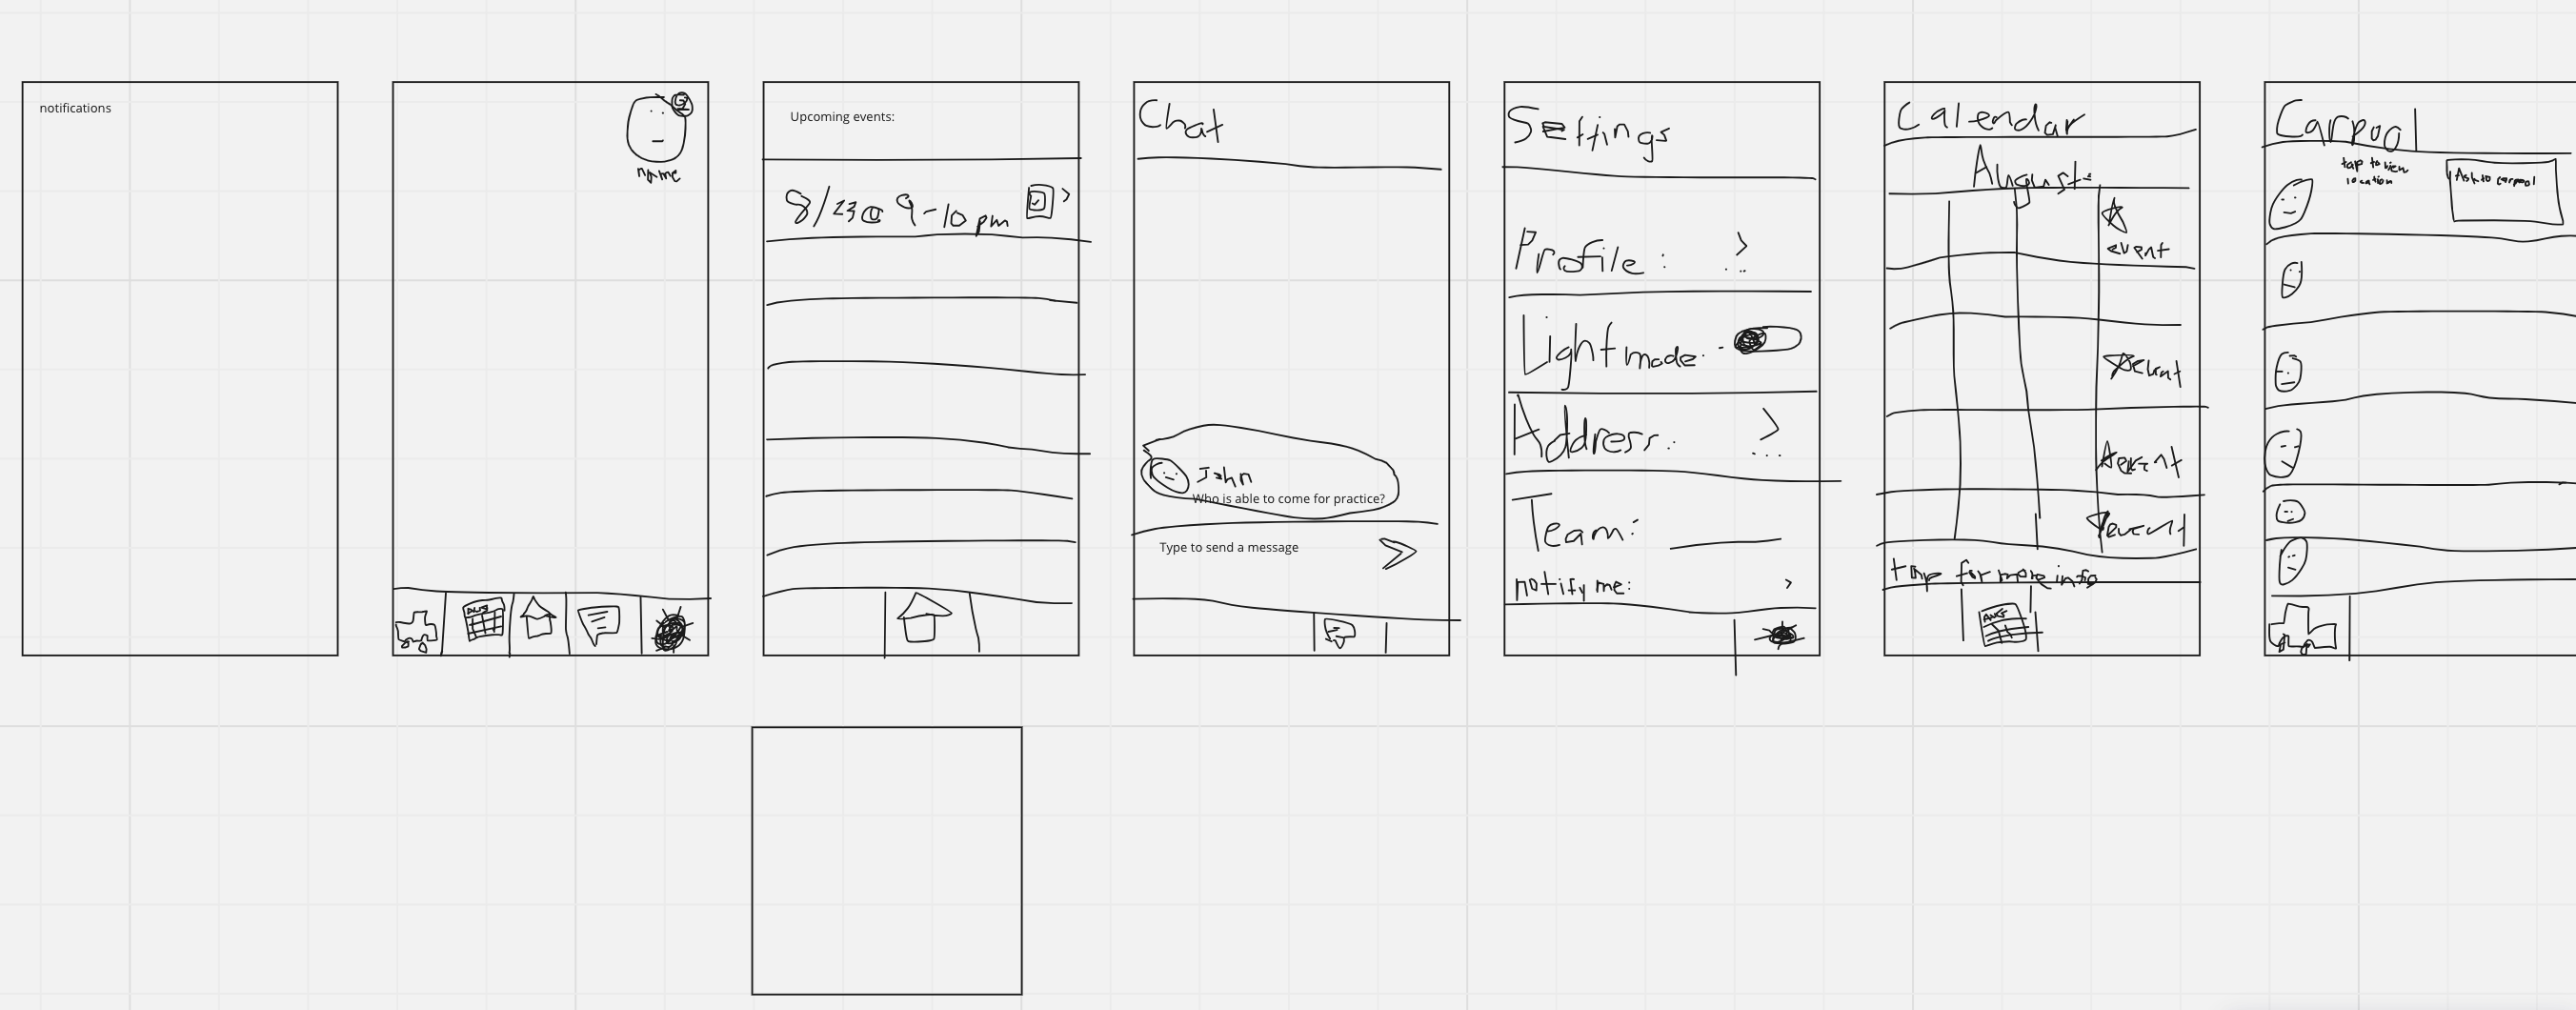 notifications
name
Upcoming events:
8/23@ 9-10pm
Chat
John
Who is able to come for practice?
Type to send a message
Settings
Profile:
Light mode:
Address:
Team:
notify me:
Calendar
August:
event
event
event
event
tap for more info
AUG
Carpool
tap to view
location
Ask to carpool